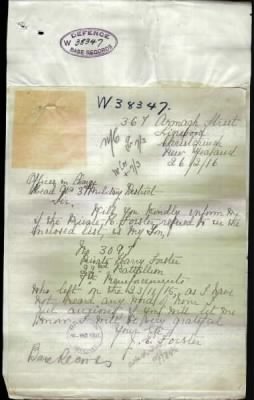 DEFENCE
W 38347
BASE RECORDS
W38347.
367 Armagh Street
Linwood
Christchurch
New Zealand
26/2/16
Officer in Charge
Head Qrs 3rd Military District
Sir,
Will you kindly inform me
if the Private H. Forster refered to in the
enclosed list, is my Son,
No 3097
Private Harry Forster
Battalion
Reinforcements
who left on the 13/11/15, as I have
not heard any word of him I
am anxious, if you will let me
know I will be very grateful
Yours etc
J. E. Forster
Base Records